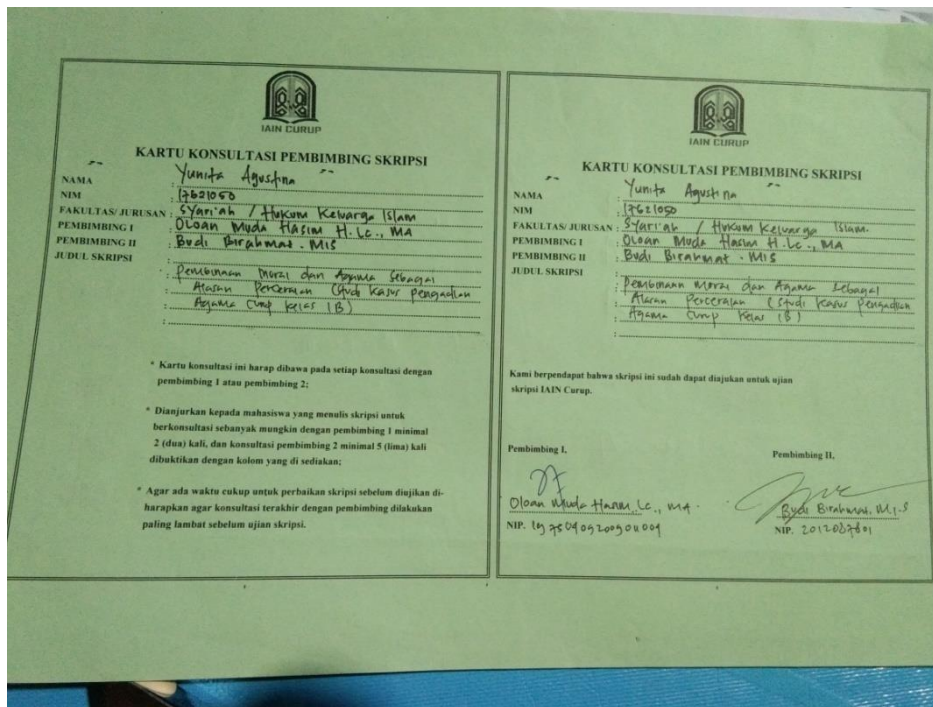 IAIN CURUP
KARTU KONSULTASI PEMBIMBING SKRIPSI
NAMA : Yunita Agustina
NIM : 17621050
FAKULTAS/ JURUSAN : Syari'ah / Hukum Keluarga Islam
PEMBIMBING I : Oloan Muda Hasim H. Lc., MA
PEMBIMBING II : Budi Birahmat . MIS
JUDUL SKRIPSI
: Pembinaan Moral dan Agama Sebagai
: Alasan Perceraian (Studi Kasus Pengadilan
: Agama Curup Kelas 1B)
:
* Kartu konsultasi ini harap dibawa pada setiap konsultasi dengan
pembimbing 1 atau pembimbing 2;
* Dianjurkan kepada mahasiswa yang menulis skripsi untuk
berkonsultasi sebanyak mungkin dengan pembimbing 1 minimal
2 (dua) kali, dan konsultasi pembimbing 2 minimal 5 (lima) kali
dibuktikan dengan kolom yang di sediakan;
* Agar ada waktu cukup untuk perbaikan skripsi sebelum diujikan di-
harapkan agar konsultasi terakhir dengan pembimbing dilakukan
paling lambat sebelum ujian skripsi.
IAIN CURUP
KARTU KONSULTASI PEMBIMBING SKRIPSI
NAMA : Yunita Agustina
NIM : 17621050
FAKULTAS/ JURUSAN : Syari'ah / Hukum Keluarga Islam.
PEMBIMBING I : Oloan Muda Hasim H. Lc., MA
PEMBIMBING II : Budi Birahmat . MIS
JUDUL SKRIPSI
: Pembinaan Moral dan Agama Sebagai
: Alasan Perceraian (Studi Kasus Pengadilan
: Agama Curup Kelas 1B)
:
Kami berpendapat bahwa skripsi ini sudah dapat diajukan untuk ujian
skripsi IAIN Curup.
Pembimbing I,
Oloan Muda Hasim, Lc., MA.
NIP.
Pembimbing II,
Budi Birahmat, M.I.S
NIP. 2012087801